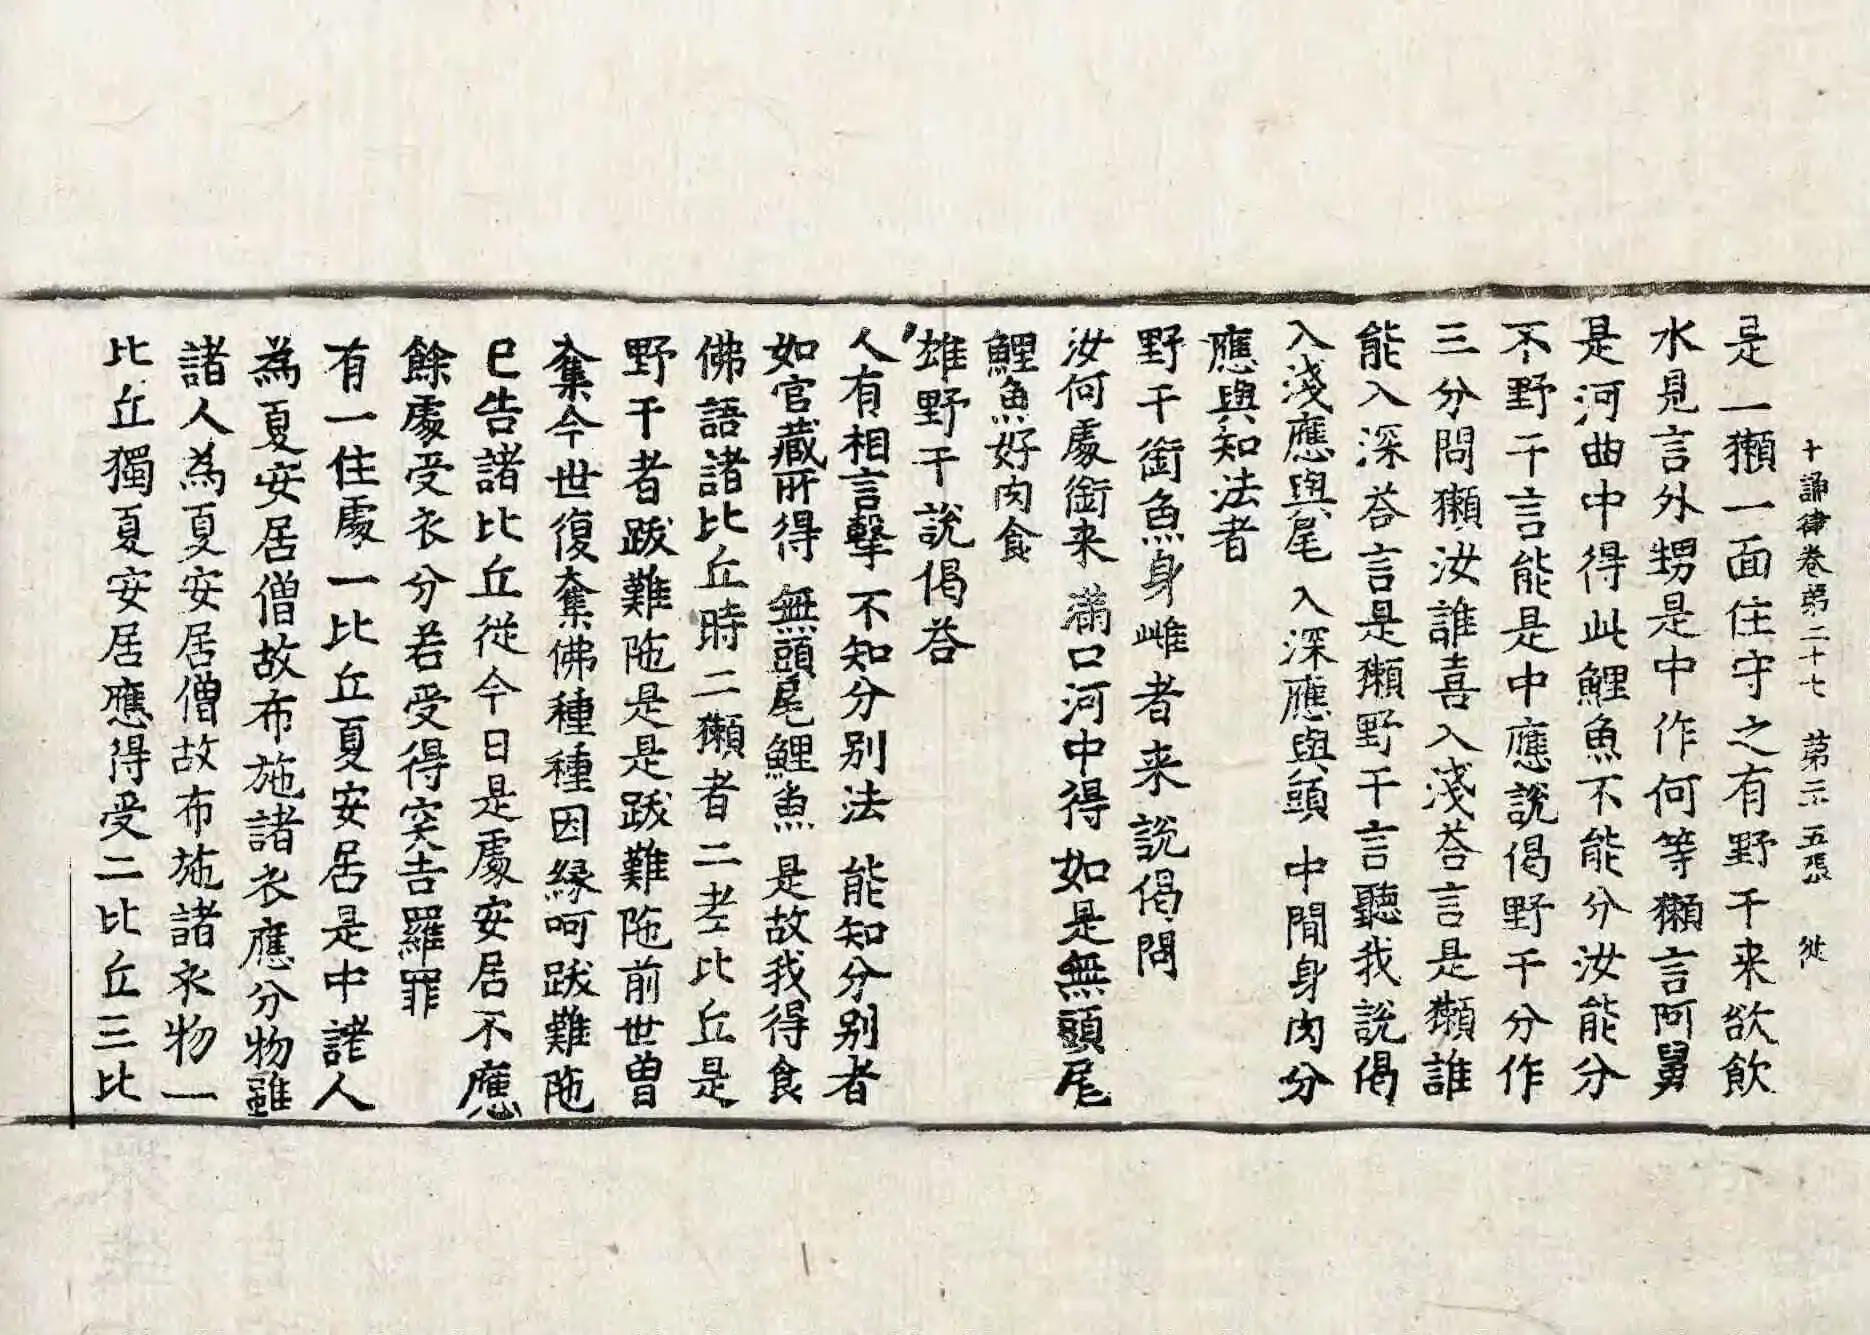 十誦律卷第二十七 第二十五張 従
是一獺一面住守之有野干来欲飲
水見言外甥是中作何等獺言阿舅
是河曲中得此鯉魚不能分汝能分
不野干言能是中應說偈野干分作
三分問獺汝誰喜入淺荅言是獺誰
能入深荅言是獺野干言聽我說偈
入淺應與尾 入深應與頭 中間身肉分
應與知法者
野干銜魚身雌者来說偈問
汝何處銜来 滿口河中得 如是無頭尾
鯉魚好肉食
雄野干說偈荅
人有相言擊 不知分別法 能知分別者
如官藏所得 無頭尾鯉魚 是故我得食
佛語諸比丘時二獺者二老比丘是
野干者跋難陁是是跋難陁前世曾
奪今世復奪佛種種因縁呵跋難陁
已告諸比丘従今日是處安居不應
餘處受衣分若受得突吉羅罪
有一住處一比丘夏安居是中諸人
為夏安居僧故布施諸衣應分物雖
諸人為夏安居僧故布施諸衣物一
比丘獨夏安居應得受二比丘三比